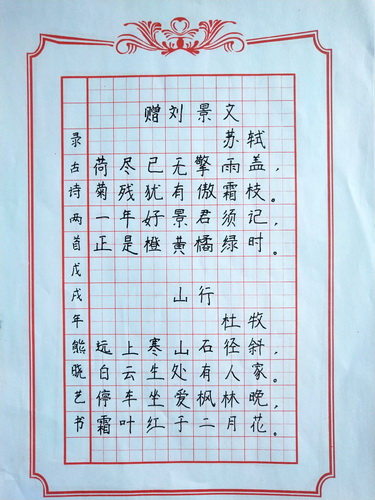 赠刘景文
苏轼
荷尽已无擎雨盖,
菊残犹有傲霜枝。
一年好景君须记,
正是橙黄橘绿时。
山行
杜牧
远上寒山石径斜,
白云生处有人家。
停车坐爱枫林晚,
霜叶红于二月花。
录古诗两首戊戌年熊晓艺书